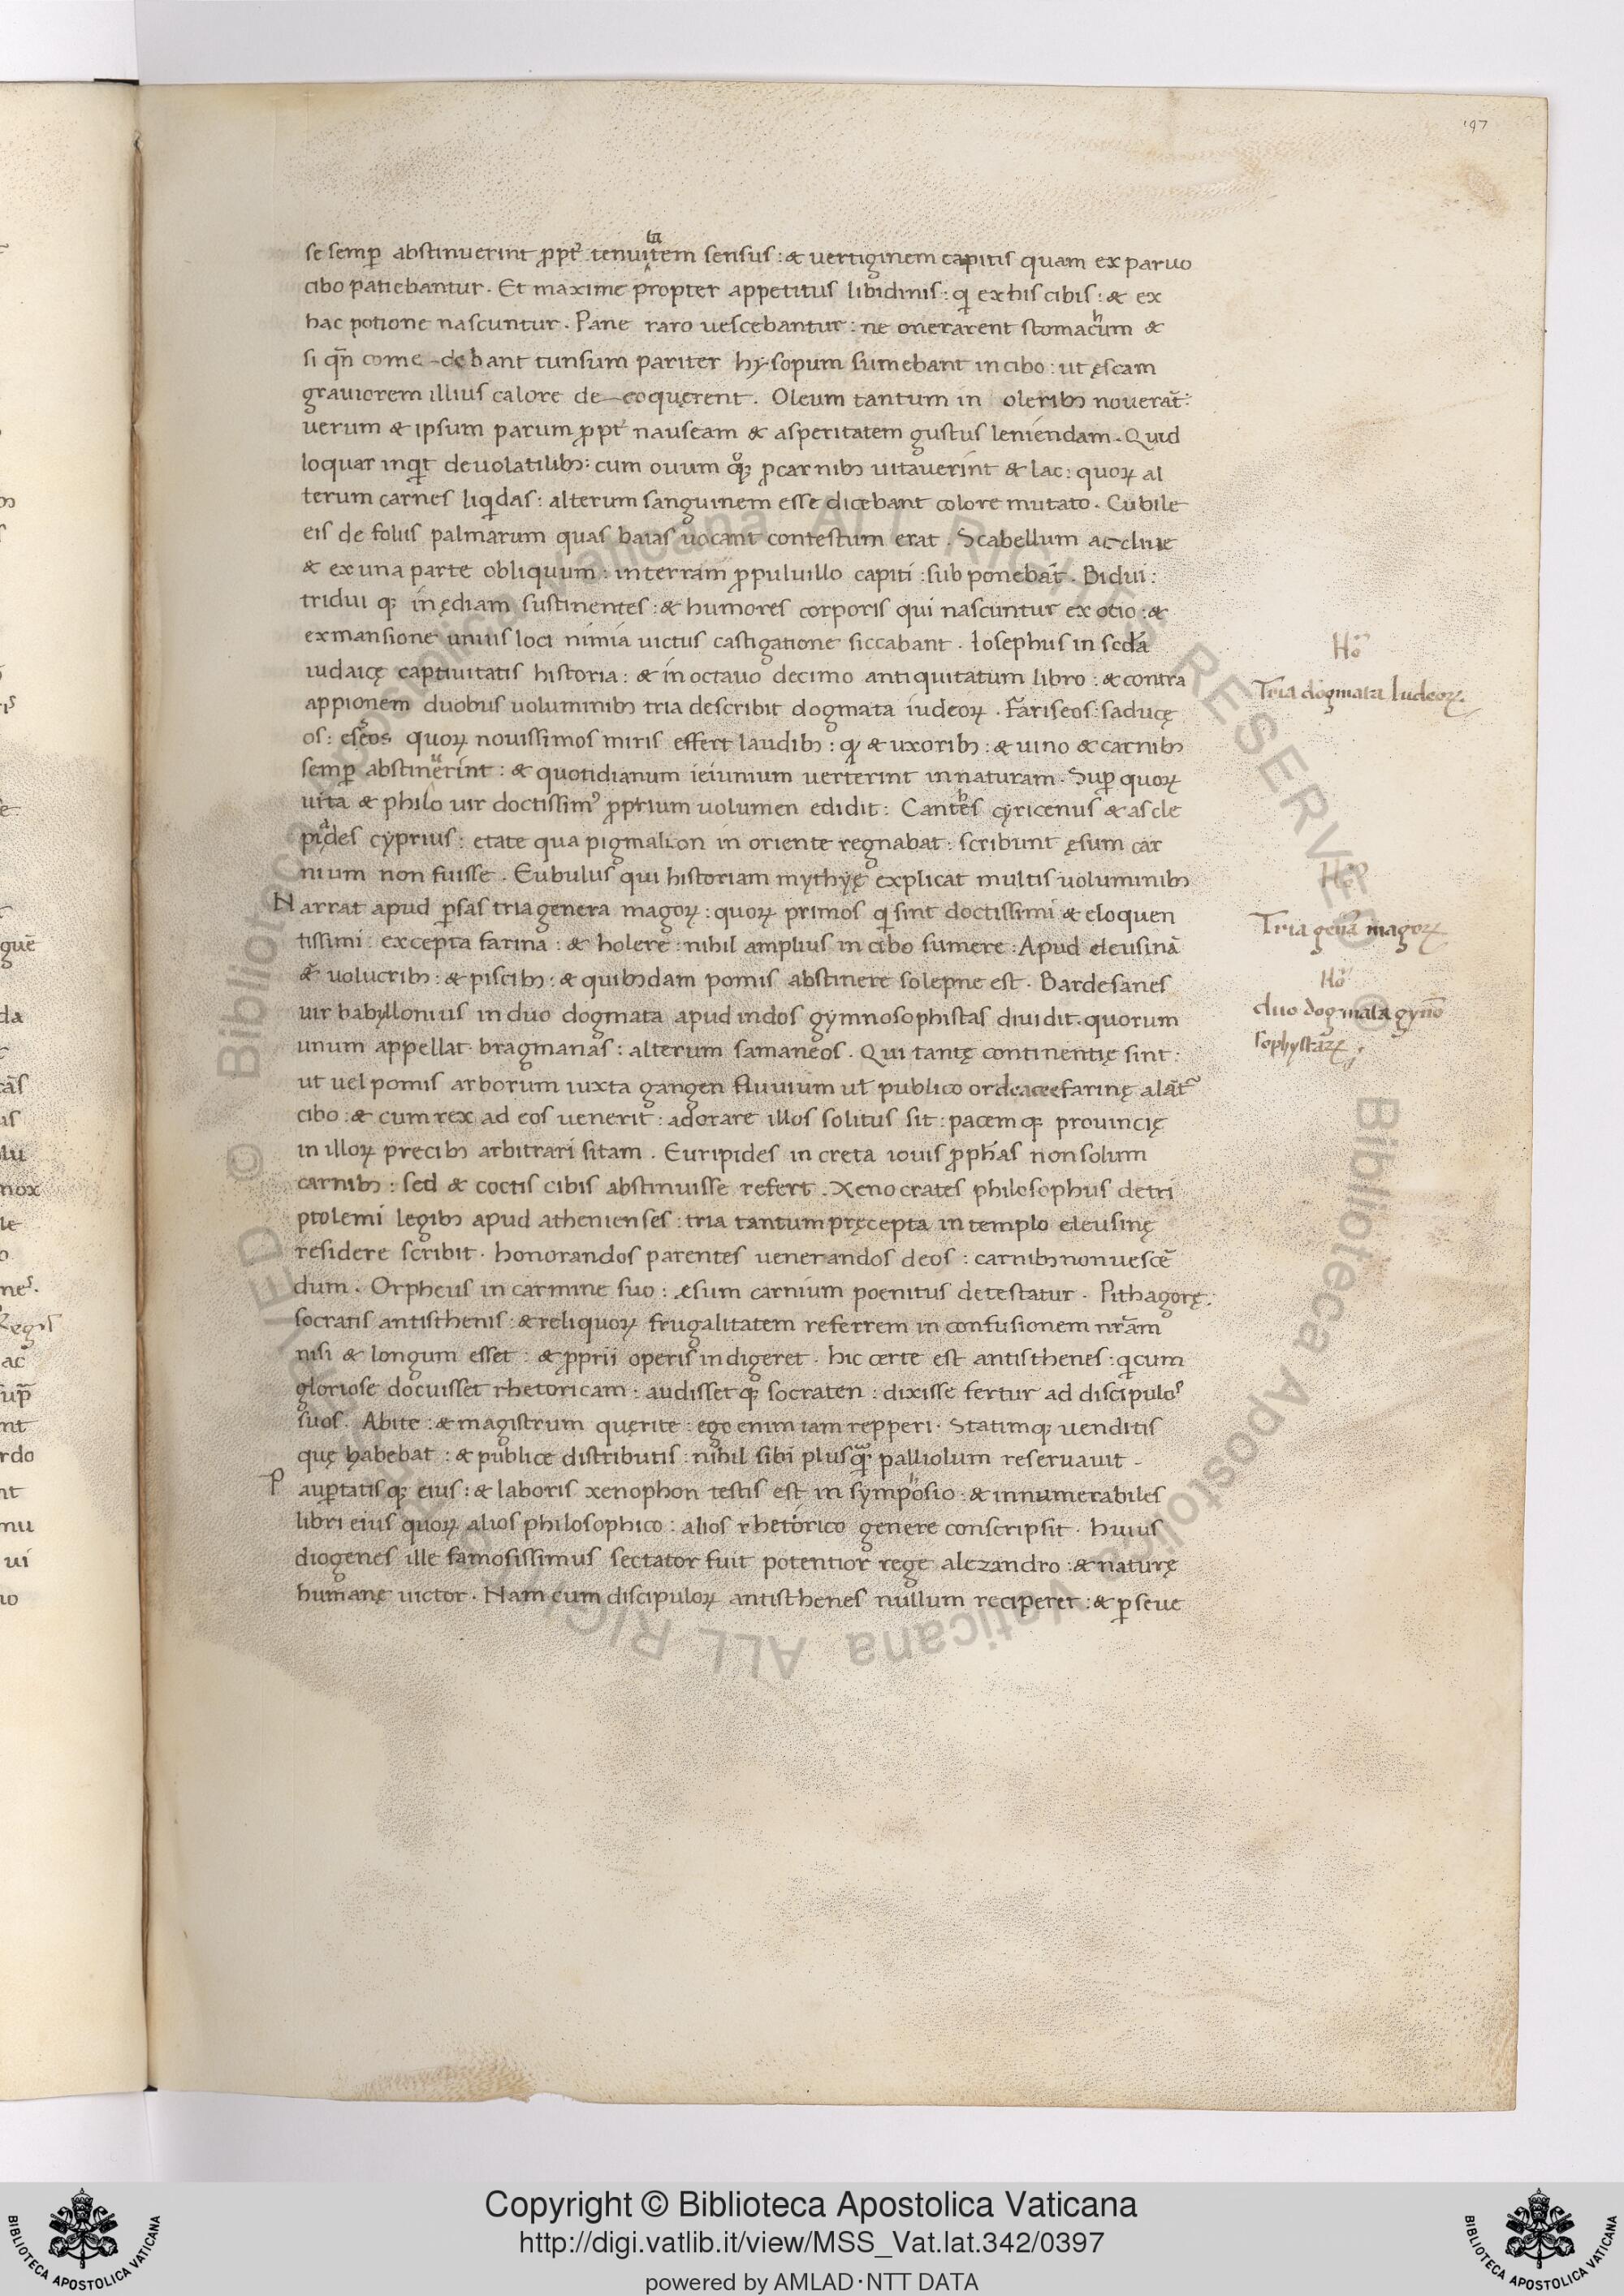 197
se semꝑ abstinuerint ꝓpt' tenuitatem sensus : & vertiginem capitis quam ex paruo
cibo patiebantur . Et maxime propter appetitus libidinis : qi ex his cibis : & ex
hac potione nascuntur . Pane raro uescebantur : ne onerarent stomachum &
si qn̄ come-debant tunsum pariter hysopum sumebant in cibo : ut ęscam
grauiorem illius calore de-coquerent . Oleum tantum in oleribꝫ nouerāt :
uerum & ipsum parum ꝓpt' nauseam & asperitatem gustus leniendam . Quid
loquar inqit de uolatilibꝫ : cum ouum qoqꝫ ꝓ carnibꝫ uitauerint & lac : quoꝝ al
terum carnes liqidas : alterum sanguinem esse dicebant colore mutato . Cubile
eis de foliis palmarum quas baias uocant contestum erat . Scabellum accliue
& ex una parte obliquum : in terram ꝓ puluillo capiti : sub ponebāt . Bidui :
tridui qꝫ inędiam sustinentes : & humores corporis qui nascuntur ex otio : &
ex mansione unius loci nimia uictus castigatione siccabant . Iosephus in scda
iudaicę captiuitatis historia : & in octauo decimo antiquitatum libro : & contra
appionem duobus uoluminibꝫ tria describit dogmata iudeoꝝ . Fariseos : saducę
os : eseos quoꝝ nouissimos miris effert laudibꝫ : q & uxoribꝫ : & uino & carnibꝫ
semꝑ abstinuerint : & quotidianum ieiunium uerterint in naturam . Suꝑ quoꝝ
uita & philo uir doctissim' ꝓprium uolumen edidit : Canthes cyricenus & ascle
piades cyprius : etate qua pigmalion in oriente regnabat : scribunt ęsum car
nium non fuisse . Eubulus qui historiam mythyę explicat multis uoluminibꝫ
Narrat apud ꝑsas tria genera magoꝝ : quoꝝ primos qi sint doctissimi & eloquen
tissimi : excepta farina : & holere : nihil amplius in cibo sumere : Apud eleusinā
& uolucribꝫ : & piscibꝫ : & quibꝫdam pomis abstinere solepne est . Bardesanes
uir babyllonius in duo dogmata apud indos gymnosophistas diuidit . quorum
unum appellat bragmanas : alterum samaneos . Qui tantę continentię sint :
ut uel pomis arborum iuxta gangen fluuium ul' publico ordeacee farinę alāt'
cibo : & cum rex ad eos uenerit : adorare illos solitus sit : pacem qꝫ prouincię
in illoꝝ precibꝫ arbitrari sitam . Euripides in creta iouis ꝓphas non solum
carnibꝫ : sed & coctis cibis abstinuisse refert . Xenocrates philosophus de tri
ptolemi legibꝫ apud athenienses : tria tantum pręcepta in templo eleusinę
residere scribit . honorandos parentes uenerandos deos : carnibꝫ non uescē
dum . Orpheus in carmine suo : esum carnium poenitus detestatur . Pithagorę :
socratis antisthenis : & reliquoꝝ frugalitatem referrem in confusionem nr̄am
nisi & longum esset : & ꝓprii operis indigeret . hic certe est antisthenes : qi cum
gloriose docuisset rhetoricam : audisset qꝫ socraten : dixisse fertur ad discipulos
suos . Abite : & magistrum quęrite : ego enim iam repperi . Statimqꝫ uenditis
quę habebat : & publice distributis : nihil sibi plus qua palliolum reseruauit -
Pauꝑtatis qꝫ eius : & laboris xenophon testis est in symposio : & innumerabiles
libri eius quoꝝ alios philosophico : alios rhetorico genere conscripsit . huius
diogenes ille famosissimus sectator fuit potentior rege alezandro : & naturę
humanę uictor . Nam cum discipuloꝝ antisthenes nullum reciperet : & ꝑseue
Tria dogmata Iudeoꝝ
Tria genā magoꝝ
duo dogmata gyno
sophystaꝝ
Copyright © Biblioteca Apostolica Vaticana
http://digi.vatlib.it/view/MSS_Vat.lat.342/0397
powered by AMLAD·NTT DATA
BIBLIOTECA APOSTOLICA VATICANA
BIBLIOTECA APOSTOLICA VATICANA